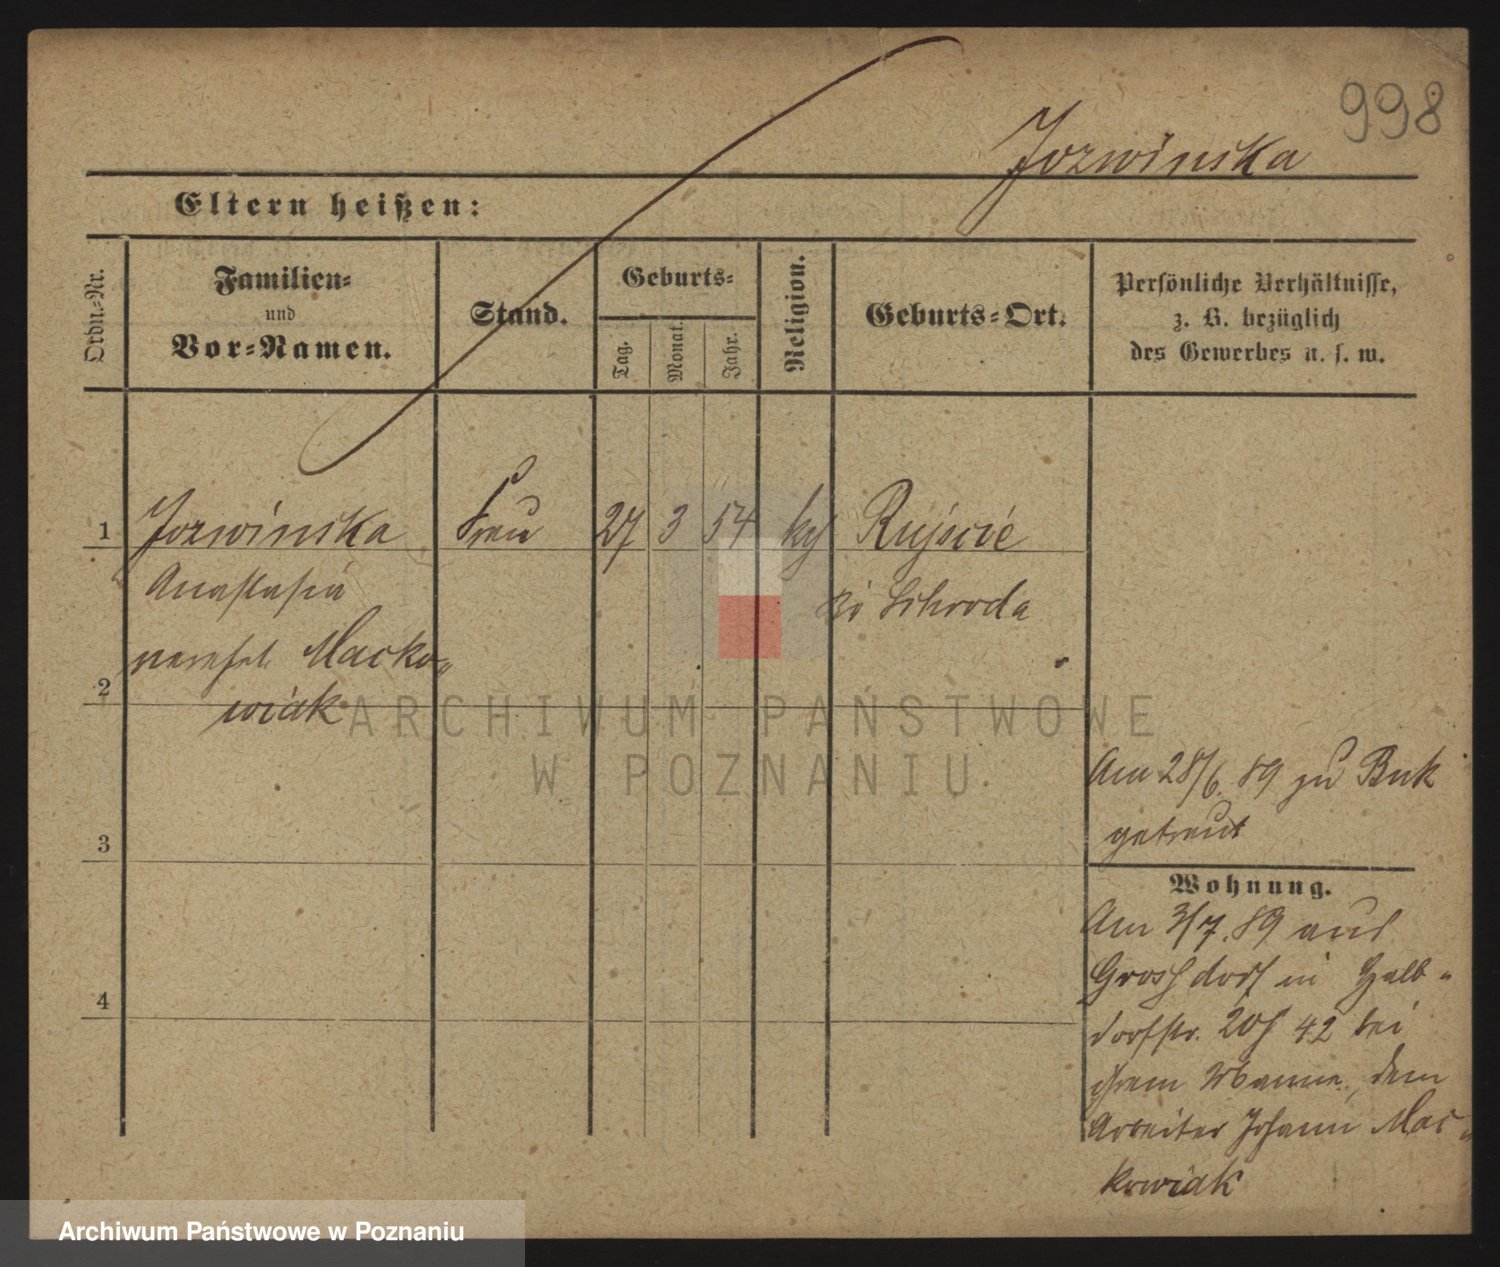 998
Jozwinska
Eltern heißen:
Ordn.-Nr.
Familien-
und
Vor-Namen.
Stand.
Geburts-
Tag.
Monat.
Jahr.
Religion.
Geburts-Ort.
Persönliche Verhältnisse,
z. B. bezüglich
des Gewerbes u. s. w.
1 Jozwinska Frau 27 3 54 kth
Anastasia bei Schroda
verehel. Macko-
2 wiak
ARCHIWUM PAŃSTWOWE
W POZNANIU
Am 28/6. 89 zu Buk
getraut
3
Wohnung.
Am 3/7. 89 aus
Grossdorf in Halb-
4
dorfstr. 42 bei
ihrem Manne, dem
Arbeiter Johann Mac-
kowiak
Archiwum Państwowe w Poznaniu